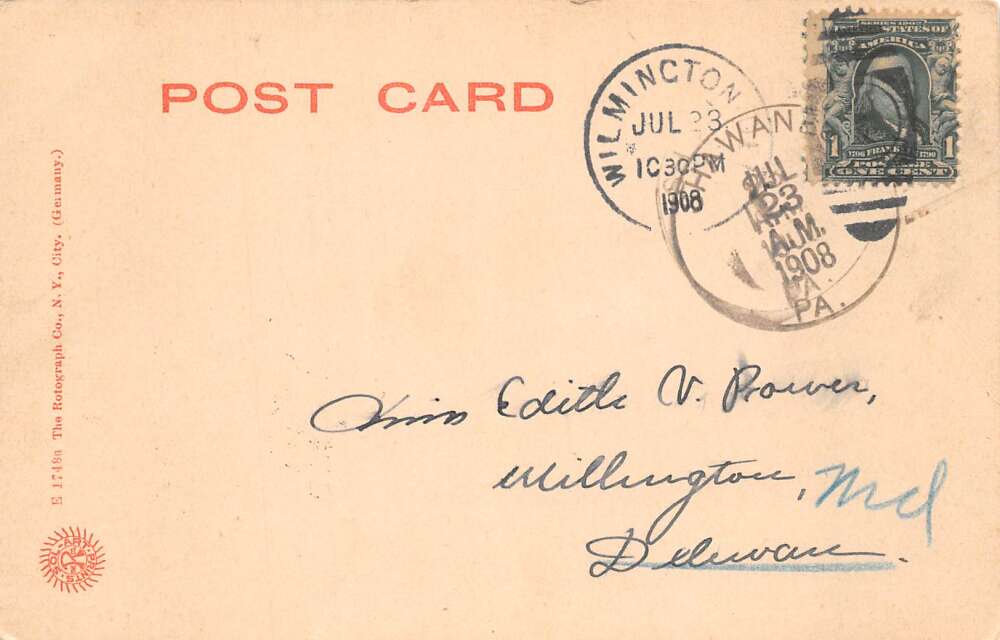 POST CARD
WILMINGTON
JUL 23
10 30 PM
1908
HAWAN
JUL
23
A.M.
1908
PA.
SERIES 1902
UNITED STATES OF
AMERICA
1 1706 FRANKLIN 1790 1
POSTAGE
ONE CENT
E 1748a The Rotograph Co., N. Y., City. (Germany.)
SOL-ART-PRINTS
Miss Edith V. Power,
Millington, Md
Deleware.